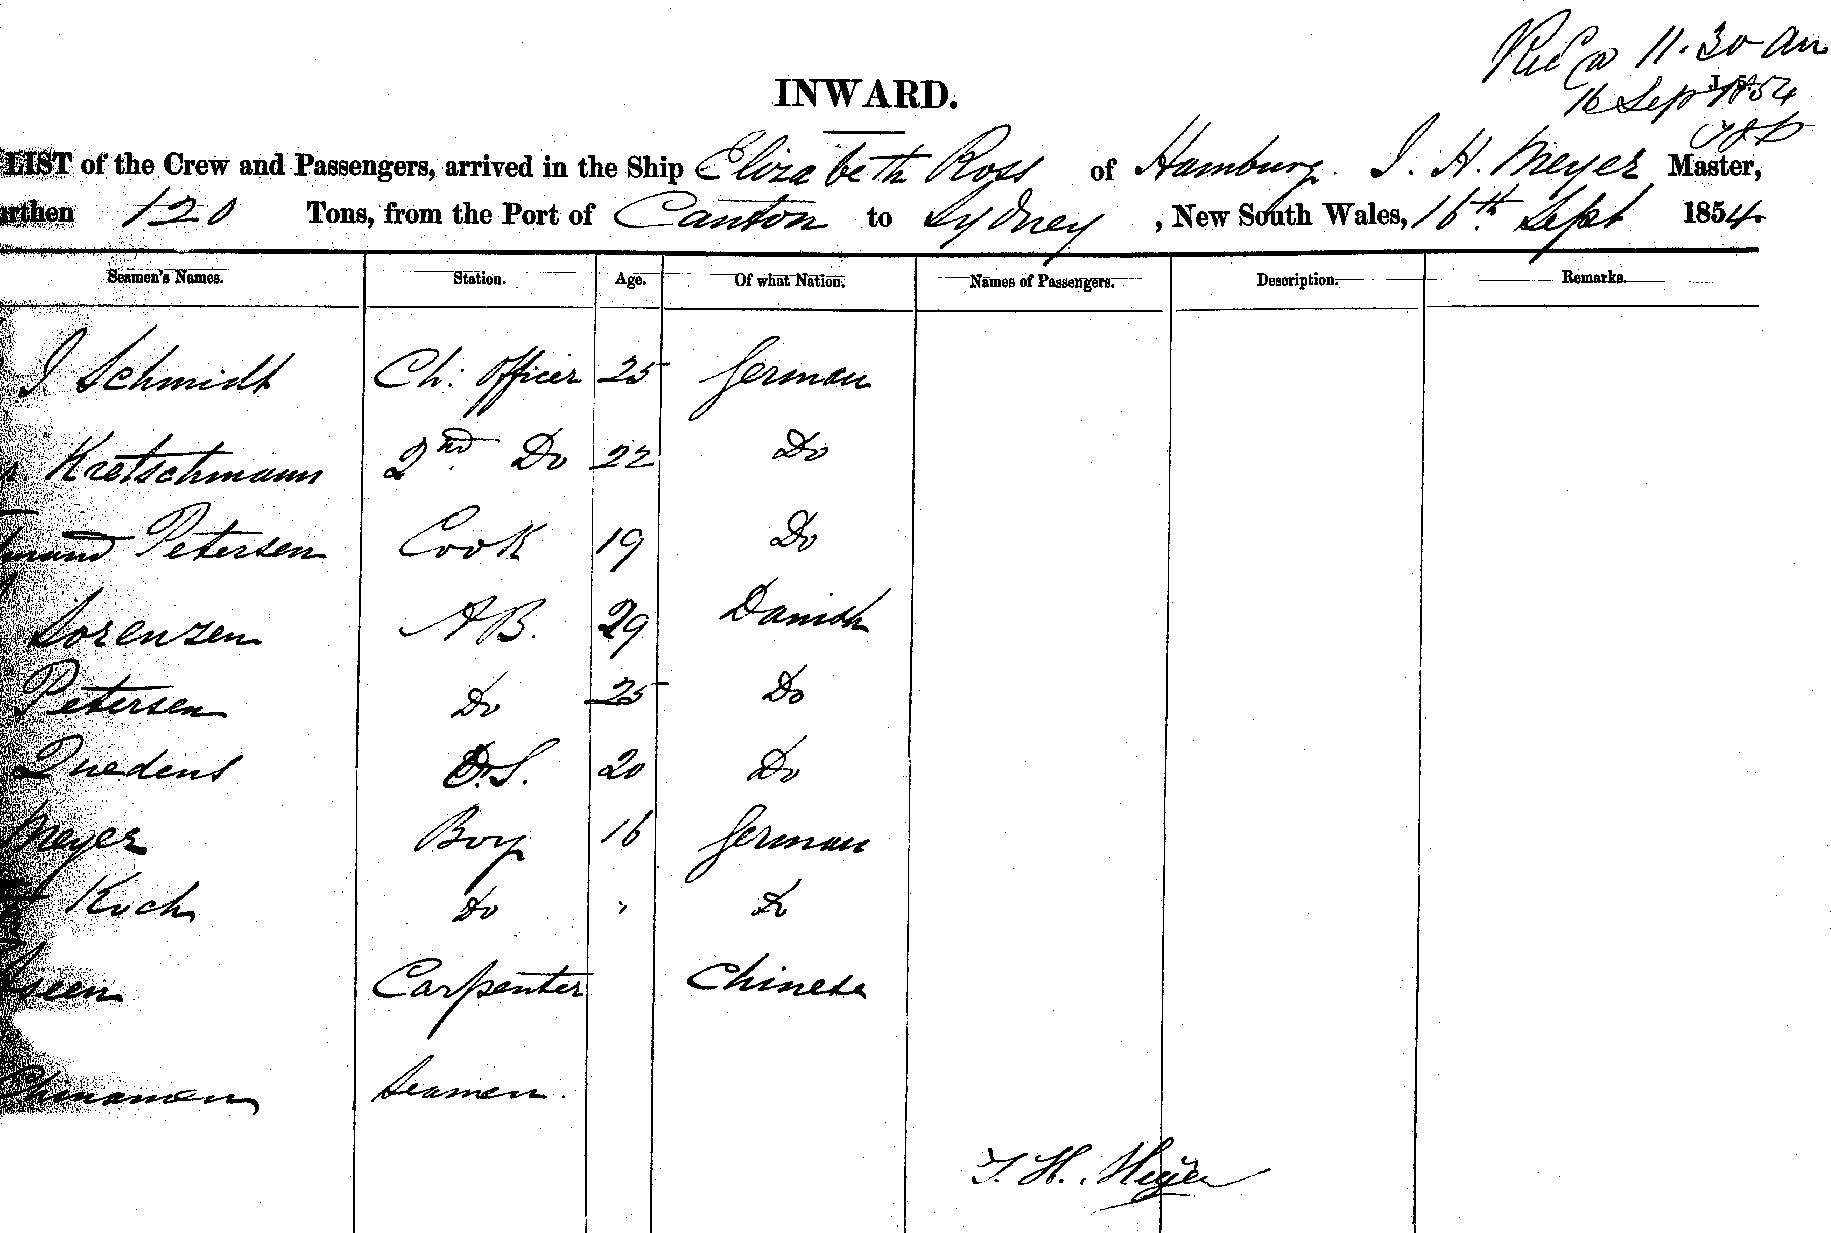 Recd @ 11.30 am
16 Sept 1854
INWARD.
LIST of the Crew and Passengers, arrived in the Ship Elizabeth Ross of Hamburg. J. H. Meyer Master,
urthen 120 Tons, from the Port of Canton to Sydney, New South Wales, 16th Sept 1854.
Seamen's Names. Station. Age. Of what Nation. Names of Passengers. Description. Remarks.
J Schmidt Ch: Officer 25 German
Kretschmann 2nd Do 22 Do
Petersen Cook 19 Do
Lorenzen AB. 29 Danish
Petersen Do 25 Do
Quedens O.S. 20 Do
Meyer Boy 16 German
Koch Do " Do
Carpenter Chinese
Chinamen Seamen.
J. H. Meyer